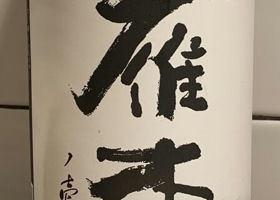 雁木
ノ壱